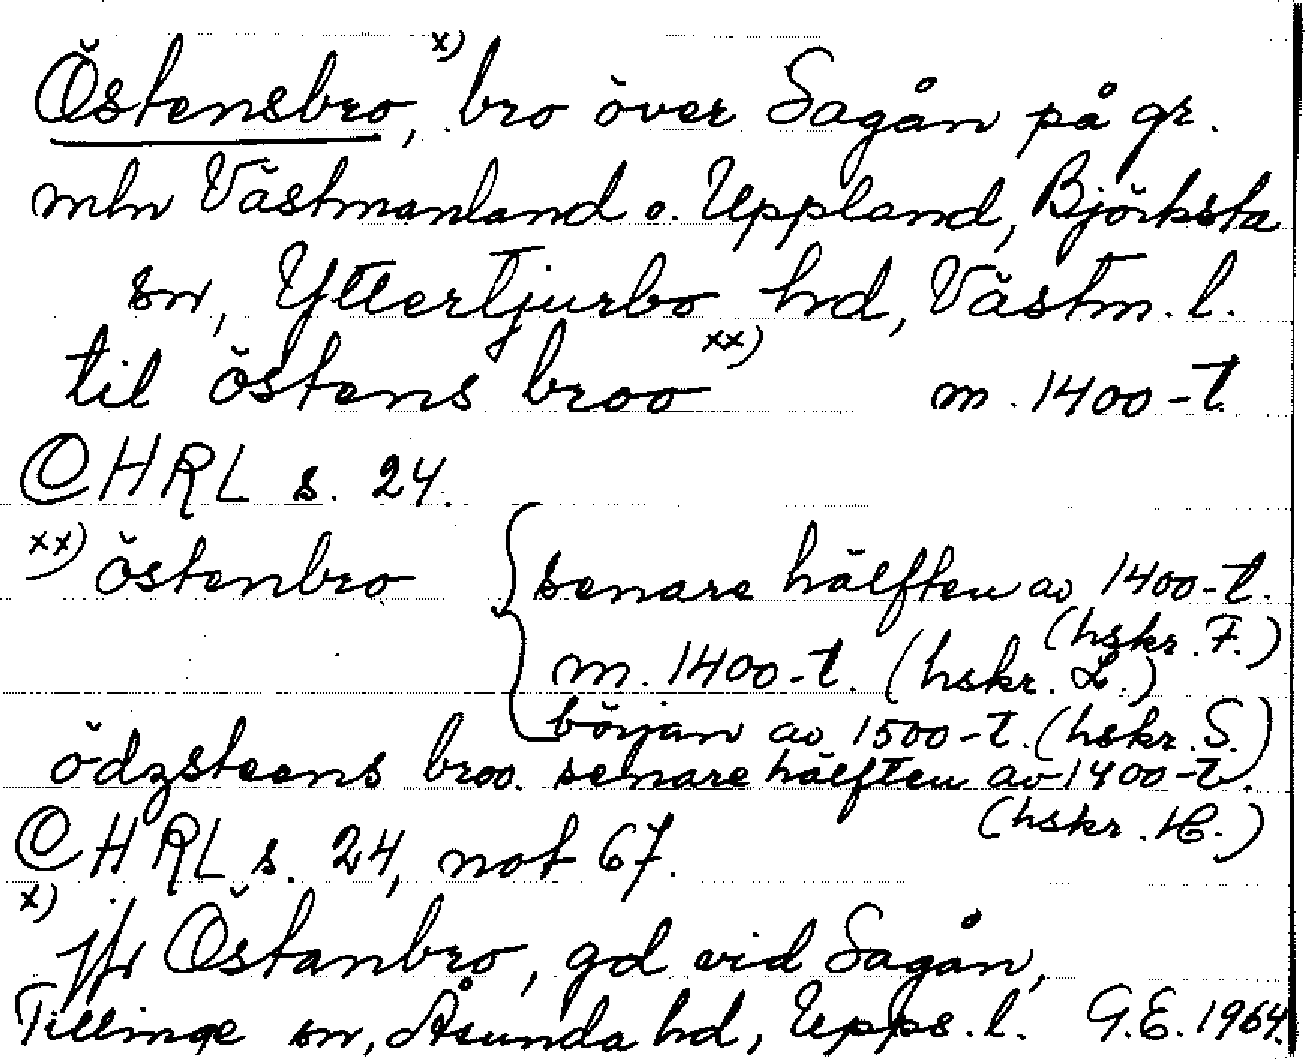 Östensbro, x) bro över Sagån på gr.
mln Västmanland o. Uppland, Björksta
sn, Yttertjurbo hd, Västm. l.
til östens broo xx) m. 1400-t.
CHRL s. 24.
xx) östenbro { senare hälften av 1400-t.
(hskr. F.)
m. 1400-t. (hskr. L.)
början av 1500-t. (hskr. S.)
ödzsteens broo. senare hälften av 1400-t.
(hskr. H.)
CHRL s. 24, not 67.
x) jfr Östanbro, gd vid Sagån,
Tillinge sn, Åsunda hd, Upps. l. G.E. 1964.